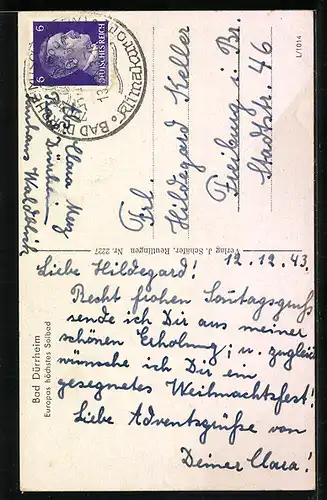 6 6
DEUTSCHES REICH
BAD DÜRRHEIM
L/1014
Frl.
Hildegard Keller
Freiburg i. Br.
Stadtstr. 46
Clara
Bad Dürrheim
Verlag J. Schäfer, Reutlingen Nr. 2227
12.12.43.
Liebe Hildegard!
Recht frohen Sonntagsgruss
sende ich Dir aus meiner
schönen Erholung; u. zugleich
wünsche ich Dir ein
gesegnetes Weihnachtsfest!
Liebe Adventsgrüße von
Deiner Clara!
Bad Dürrheim
Europas höchstes Solbad